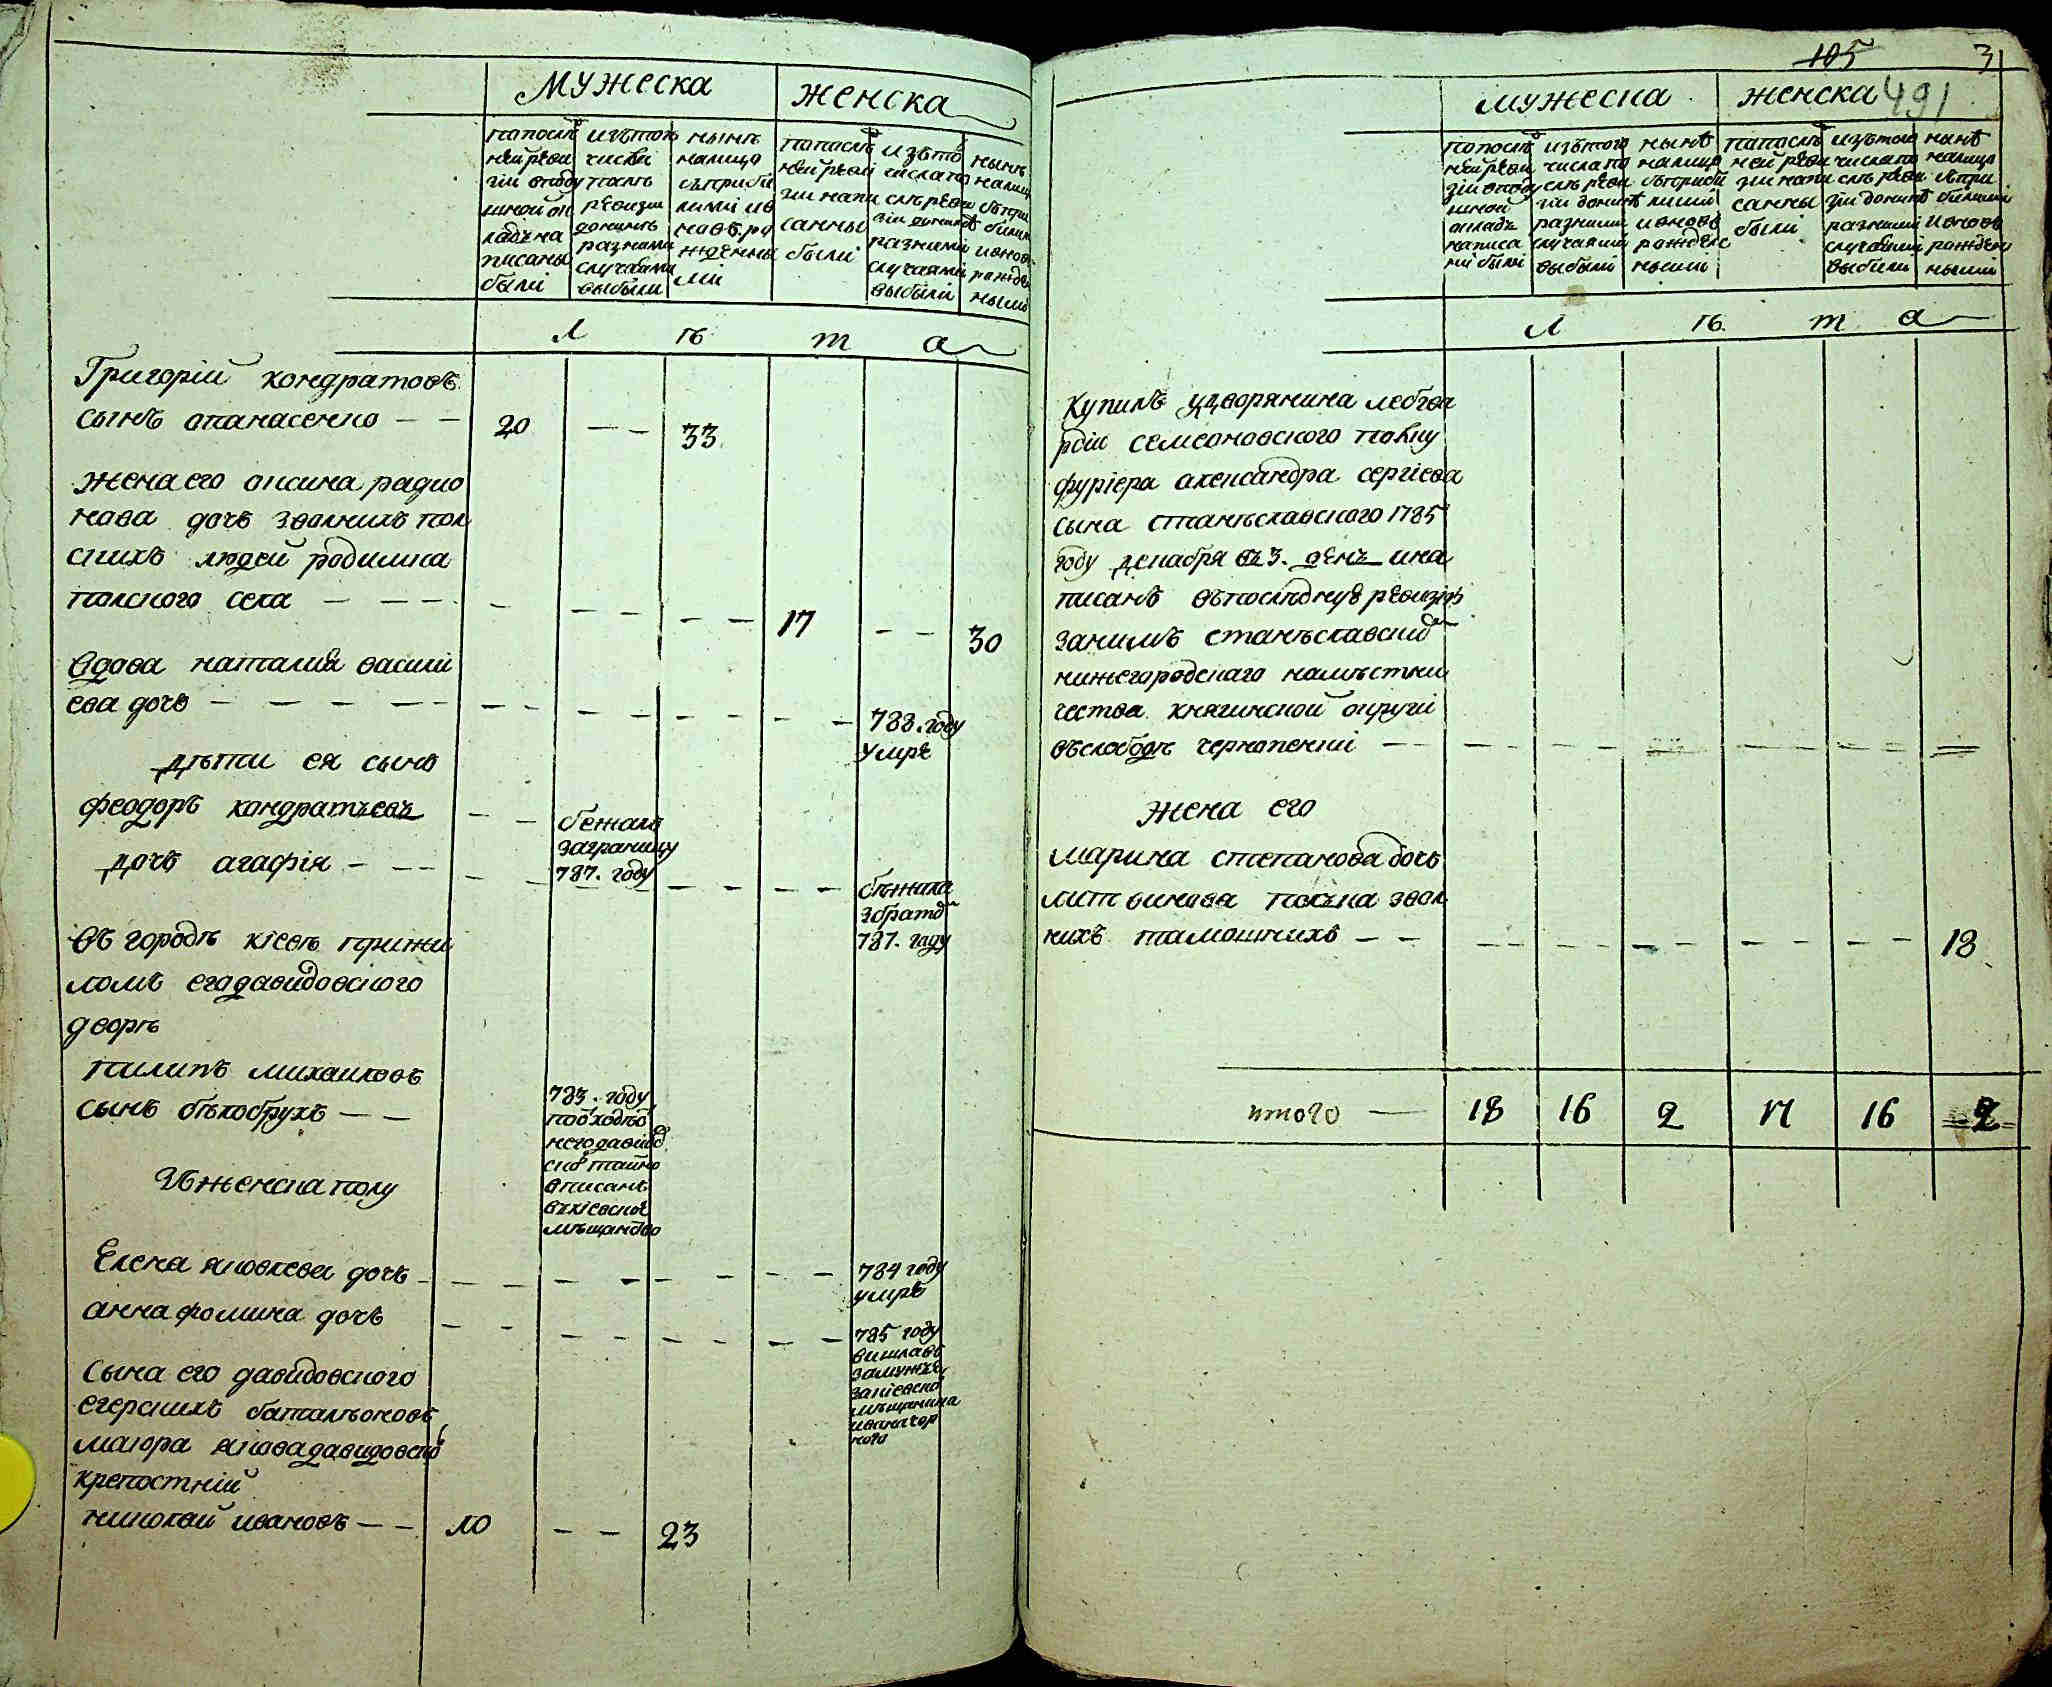 мужеска
женска
по послѣ
ней реви
зіи в подуш
ной ок
ладъ на
писаны
были
изътого
числа
послѣ
ревизии
до ныне
разними
случаями
выбыли
нынѣ
налицо
съприбы
лими ив
новърож
денны
ми
по послѣ
ней реви
зіи напи
санны
были
изъто
числа по
слѣ реви
зіи до нинѣ
разними
случаями
выбыли
нынѣ
налицо
съпри
былим
и внов
рожден
ными
л ѣ т а
Григорій кондратовъ
сынъ опанасенко — — 20 — — 33
жена его оксина радио
нова дочь зволнихъ пол
скихъ людей родилила
полского села — — — 17 — — 30
вдова наталия васили
ева дочь — — — 788. году
умре
дѣти ея сынъ
феодоръ кондратъевъ — — бежалъ
заграницу
787. году
дочь агафія — — — бѣжила
збратом
787. году
въ городѣ кіевѣ при жи
ломъ его давидовского
дворѣ
пилипъ михайловъ
сынъ бѣлобрухъ — —
783. году
въкіевское
мѣщанство
Зъженска полу
Елена яковлева дочь — — — 784 году
умрѣ
анна фомина дочь — — — 785 году
вишла въ
замужъе
за кіевско
мѣщанина
ивана чор
ного
сына его давидовского
егерскихъ баталѣоновъ
маіора якова давидовско
крепостній
николай ивановъ — — 10 — — 23
105
31
491
мужеска
женска
по послѣ
ней реви
зіи в поду
шной
окладъ
написа
ни были
изътого
числа по
слѣ реви
зіи до нинѣ
разними
случаями
выбыли
нынѣ
налицо
съприбы
лими
и вновъ
рожден
ными
по послѣ
ней реви
зіи напи
санны
были
изътого
числа по
слѣ реви
зіи до нинѣ
разними
случаями
выбыли
нынѣ
налицо
съпри
былими
и вновъ
рожден
ными
л ѣ т а
купилъ удворянина лебгва
рдіи семеоновского полку
фуріера александра сергіева
сына станѣславского 1785
году декабря въ 3. день и на
писанъ въпоследную ревизію
занимъ станѣславским
нижегородскаго намѣстни
чества княгинской округи
въслободѣ черноленкіи — —
жена его
марина степанова дочь
литвинова полка звол
нихъ тамошнихъ — — 18
итого — 18 16 2 17 16 2